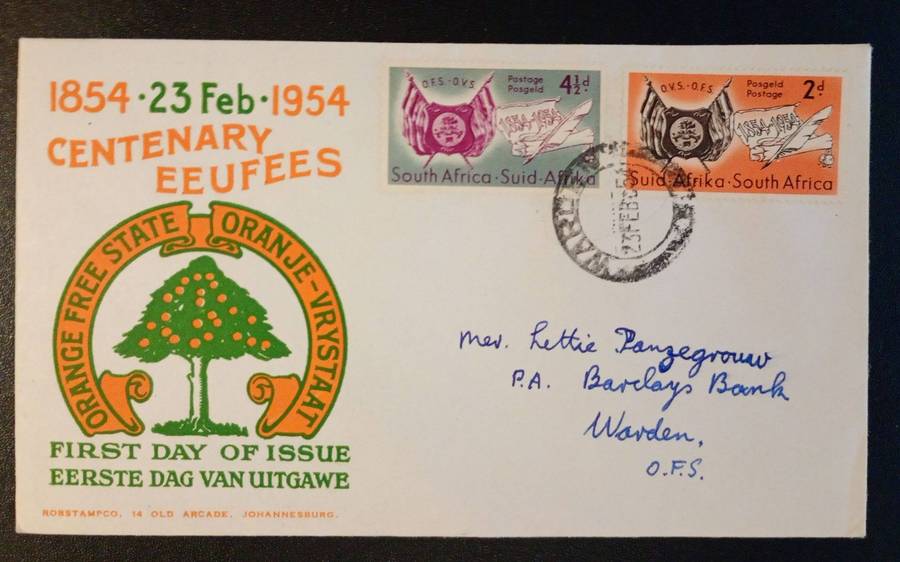 1854 · 23 Feb · 1954
CENTENARY
EEUFEES
ORANGE FREE STATE ORANJE-VRYSTAAT
FIRST DAY OF ISSUE
EERSTE DAG VAN UITGAWE
ROBSTAMPCO, 14 OLD ARCADE, JOHANNESBURG.
O.F.S. - O.V.S.
Postage
Posgeld
4½d
1854-1954
South Africa · Suid-Afrika
O.V.S. - O.F.S.
Posgeld
Postage
2d
1854-1954
Suid-Afrika · South Africa
23FEB
Mev. Lettie Panzegrouw
P.A. Barclays Bank
Warden,
O.F.S.